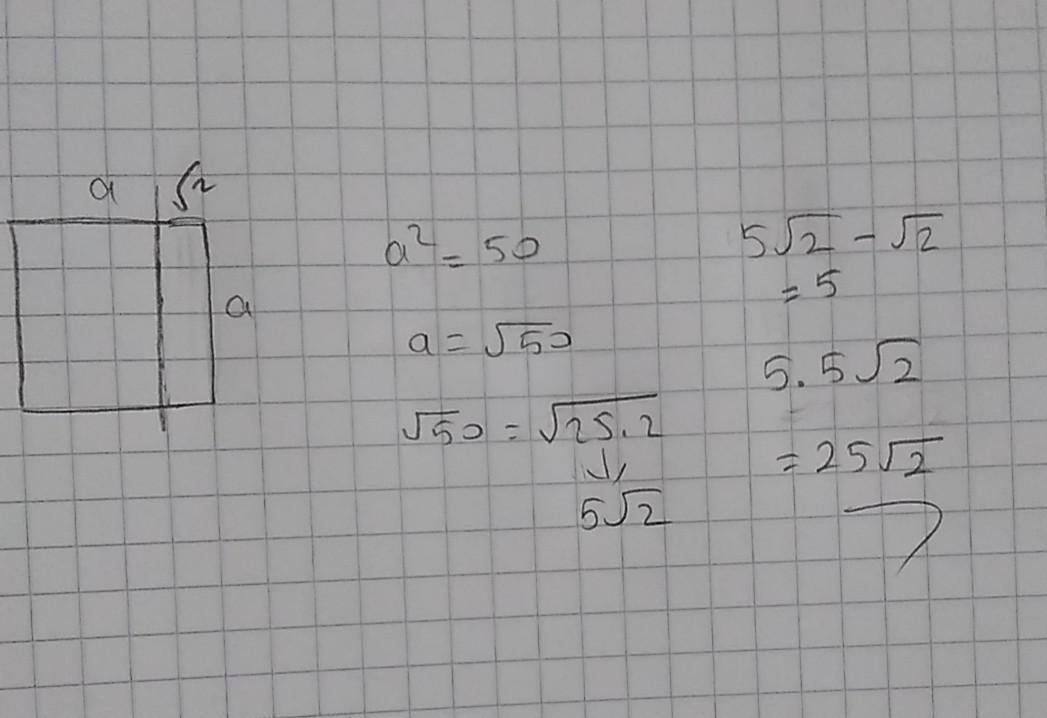 a √2
a
a² = 50
a = √50
√50 = √25.2
↓
5√2
5√2 - √2
= 5
5. 5√2
= 25√2